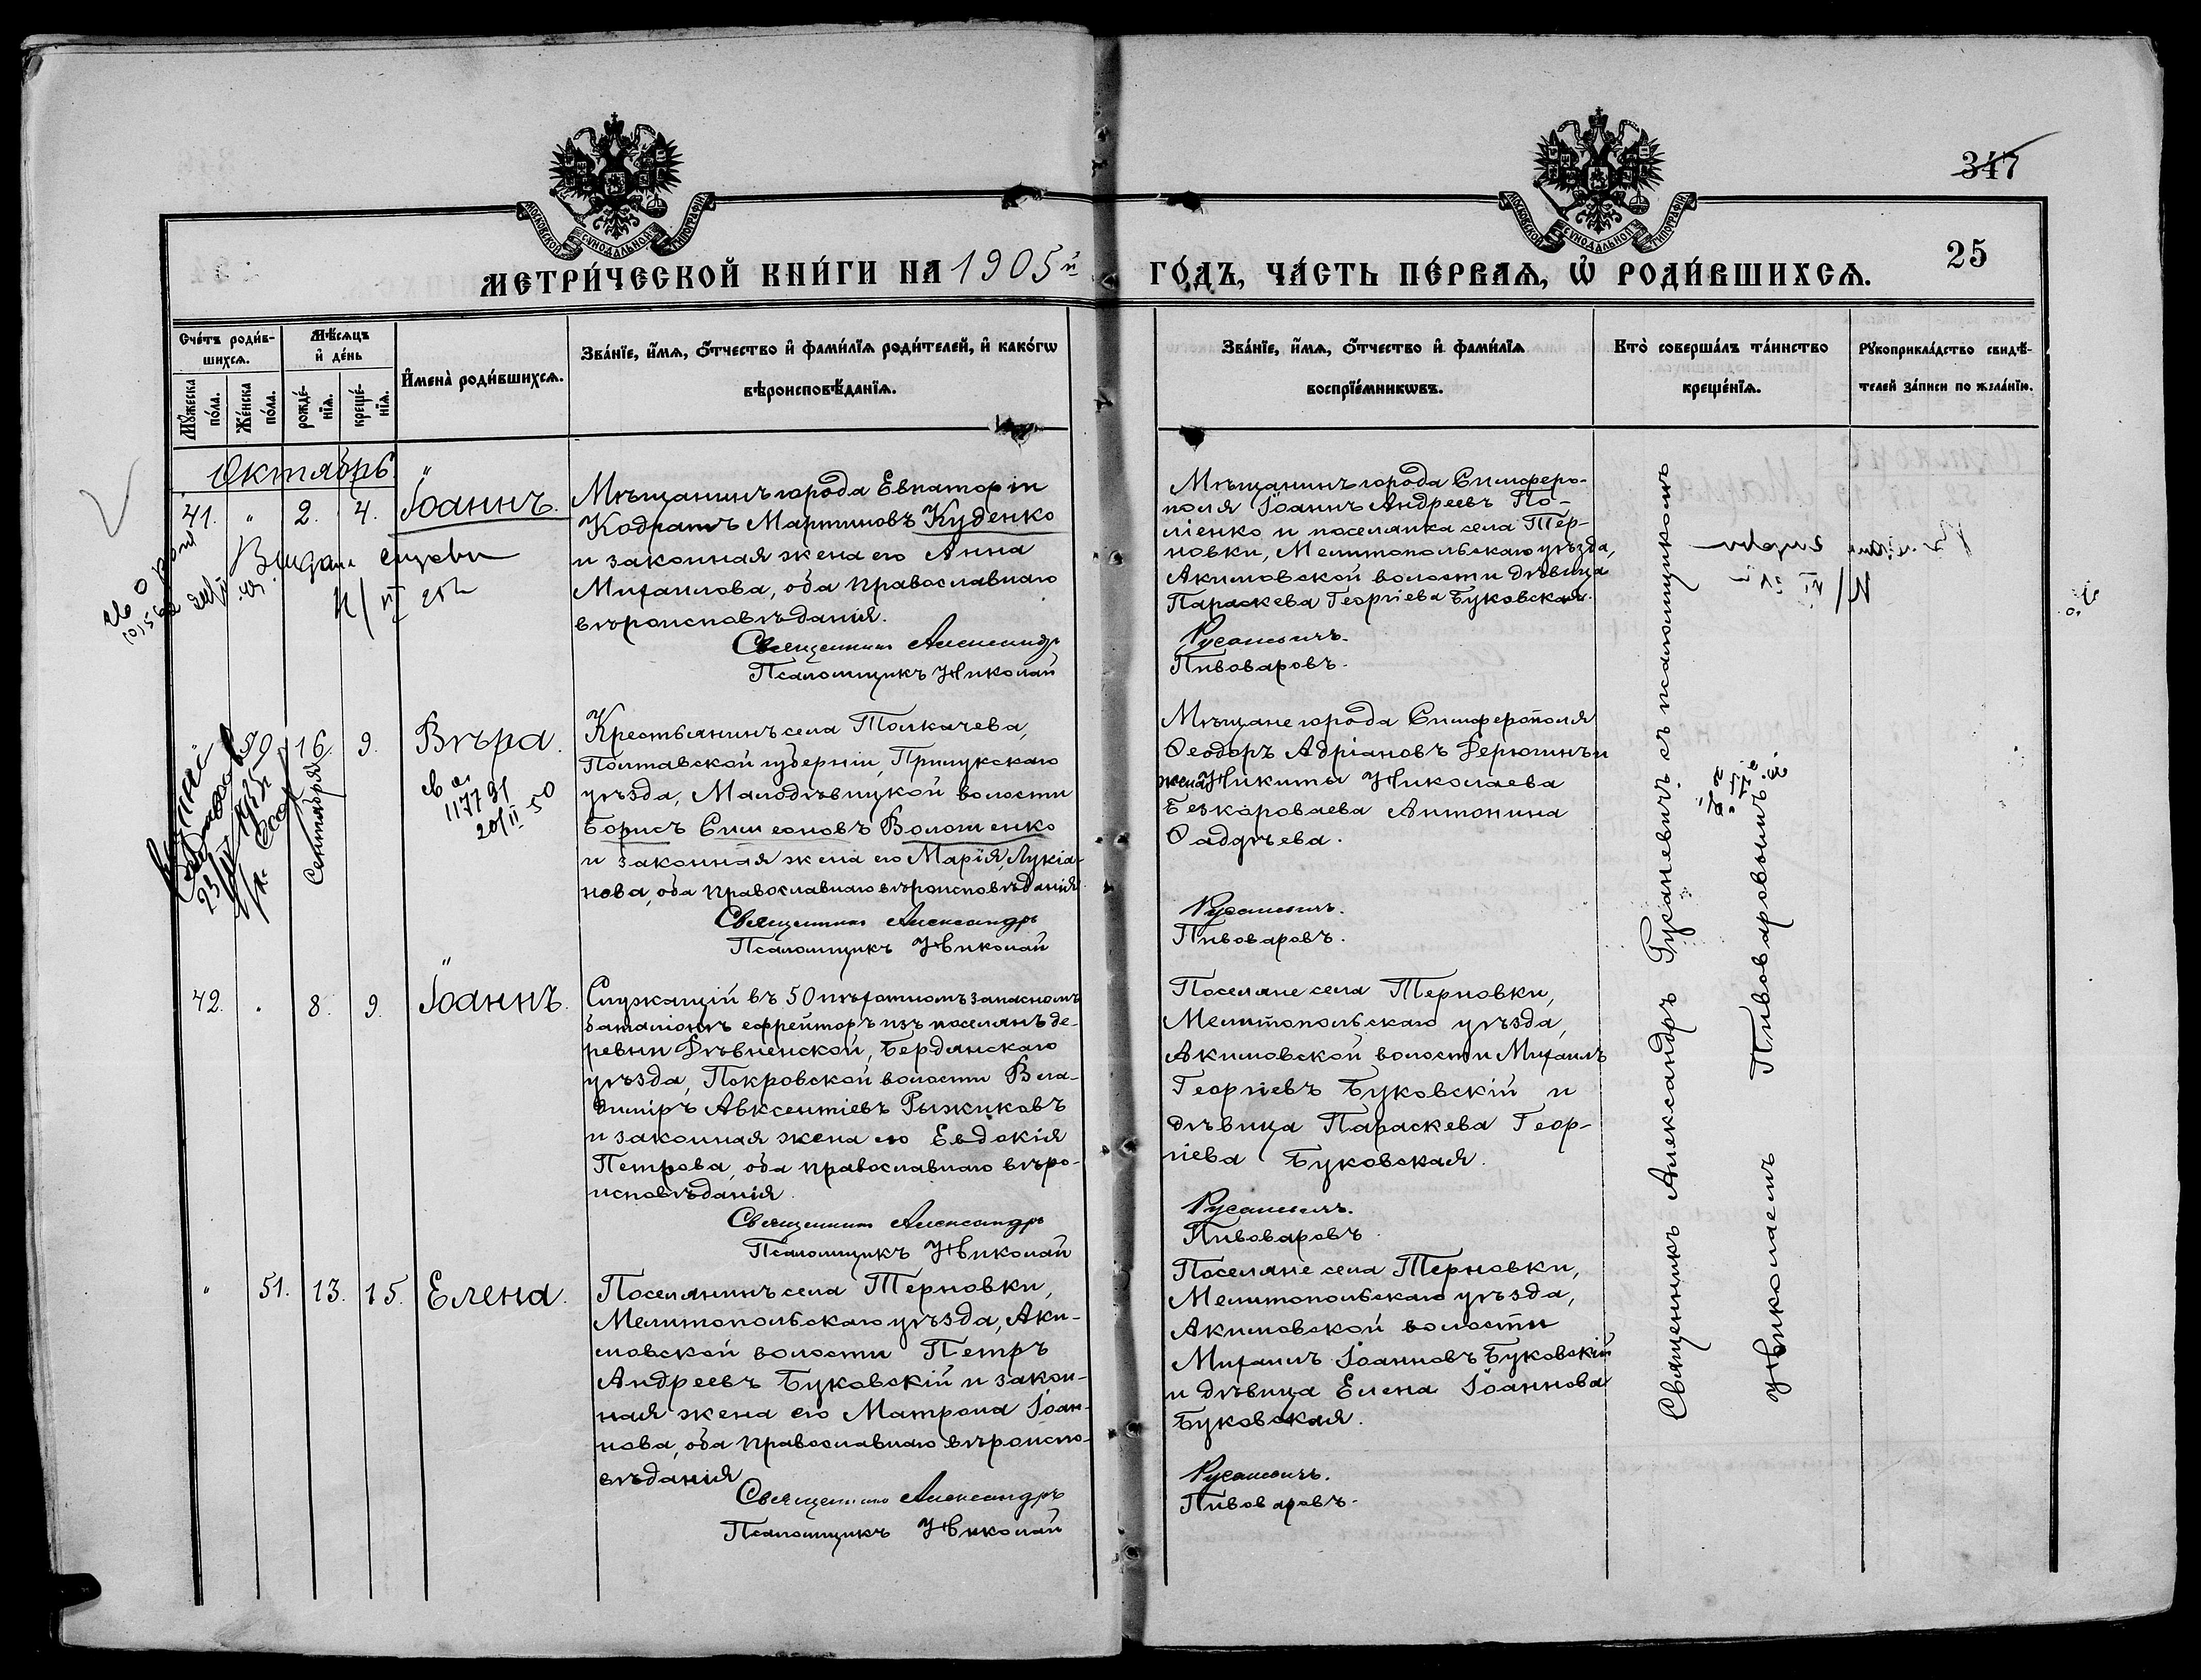 347
25
МОСКОВСКОЙ СѴНОДАЛЬНОЙ ТИПОГРАФІИ
МОСКОВСКОЙ СѴНОДАЛЬНОЙ ТИПОГРАФІИ
МЕТРИ́ЧЕСКОЙ КНИ́ГИ НА 1905й ГО́ДЪ, ЧА́СТЬ ПЕ́РВАѦ, Ѡ҆ РОДИ́ВШИХСѦ.
Сче́тъ роди́в-
шихсѧ.
Мѣ́сѧцъ
и҆ де́нь
Мꙋ́жеска
по́ла.
Же́нска
по́ла.
рожде́-
нїѧ.
креще́-
нїѧ.
И҆мена̀ роди́вшихсѧ.
Зва́нїе, и҆́мѧ, ѻ҆́тчество и҆ фами́лїѧ роди́телей, и҆ како́гѡ
вѣроисповѣ́данїѧ.
Зва́нїе, и҆́мѧ, ѻ҆́тчество и҆ фами́лїѧ
воспрїе́мникѡвъ.
Кто̀ соверша́лъ та́инство
креще́нїѧ.
Рꙋкоприкла́дство свидѣ́-
телей за́писи по жела́нїю.
Октябрь.
41. " 2. 4. Іоаннъ.
Мѣщанинъ города Евпаторіи
Кодратъ Мартиновъ Куденко
и законная жена его Анна
Михаилова, оба православнаго
вѣроисповѣданія.
Священникъ Александръ
Псаломщикъ Николай
Мѣщанинъ города Симферо-
поля Іоаннъ Андреевъ По-
ліенко и поселянка села Тер-
новки, Мелитопольскаго уѣзда,
Акимовской волости дѣвица
Параскева Георгіева Буковская.
Русаневичъ.
Пивоваровъ.
50 16. Сентября 9. Вѣра.
св а
117791
20/II 50
Крестьянинъ села Толкачева,
Полтавской губерніи, Прилукскаго
уѣзда, Малодѣвицкой волости
Борисъ Симеоновъ Волошенко
и законная жена его Марія Лукіа-
нова, оба православнаго вѣроисповѣданія
Священникъ Александръ
Псаломщикъ Николай
Мѣщане города Симферополя
Ѳеодоръ Адріановъ Дерюгинъ и
жена Никиты Николаева
Безкороваева Антонина
Ѳаддѣева.
Русаневичъ.
Пивоваровъ.
42. " 8. 9. Іоаннъ.
Служащій въ 50 пѣхотномъ запасномъ
баталіонѣ ефрейторъ изъ поселянъ де-
ревни Дѣвненской, Бердянскаго
уѣзда, Покровской волости Вла-
диміръ Авксентіевъ Рыжиковъ
и законная жена его Евдокія
Петрова, оба православнаго вѣро-
исповѣданія.
Священникъ Александръ
Псаломщикъ Николай
Поселяне села Терновки,
Мелитопольскаго уѣзда,
Акимовской волости Михаилъ
Георгіевъ Буковскій и
дѣвица Параскева Геор-
гіева Буковская.
Русаневичъ.
Пивоваровъ.
" 51. 13. 15. Елена.
Поселянинъ села Терновки,
Мелитопольскаго уѣзда, Аки-
мовской волости Петръ
Андреевъ Буковскій и закон-
ная жена его Матрона Іоан-
нова, оба православнаго вѣроиспо-
вѣданія
Священникъ Александръ
Псаломщикъ Николай
Поселяне села Терновки,
Мелитопольскаго уѣзда,
Акимовской волости
Михаилъ Іоанновъ Буковскій
и дѣвица Елена Іоаннова
Буковская.
Русаневичъ.
Пивоваровъ.
Священникъ Александръ Русаневичъ съ псаломщикомъ
Николаемъ Пивоваровымъ.